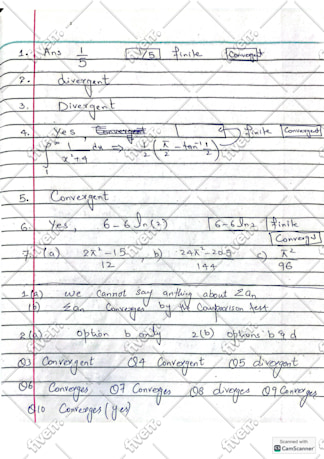 1. Ans 1/5 [1/5] finite [Convergent]
2. divergent
3. Divergent
4. Yes finite [Convergent]
∫ 1/(x²+4) dx ⇒ 1/2 (π/2 - tan⁻¹ 1/2)
5. Convergent
6. Yes, 6-6 ln(2) [6-6 ln2] finite
[Converge]
7. (a) 2π²-15/12, b) 24π²-205/144 c) π²/96
1 (a) we cannot say anything about Σan
(b) Σan Converges by the Comparison test
2 (a) option b only 2(b) options b & d
Q3 Convergent Q4 Convergent Q5 divergent
Q6 Converges Q7 Converges Q8 diverges Q9 Converges
Q10 Converges (yes)
Scanned with
CS CamScanner